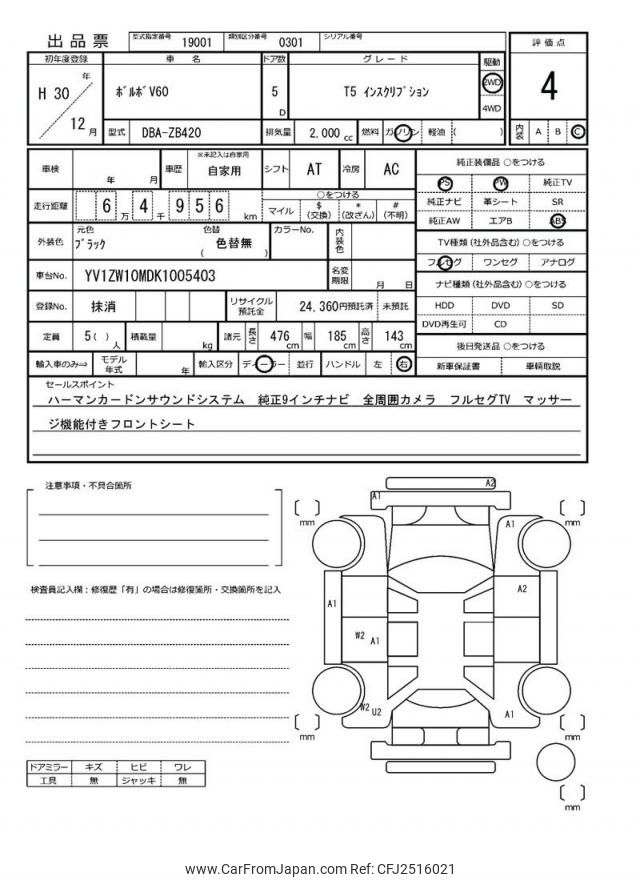 出品票
型式指定番号 19001 類別区分番号 0301 シリアル番号
評価点
4
内装 A B C
初年度登録 車名 ドア数 グレード 駆動
H 30 年 12 月
ボルボV60 5 D T5 インスクリプション 2WD 4WD
型式 DBA-ZB420 排気量 2,000 cc 燃料 ガソリン 軽油 ( )
車検 年 月 車歴 ※未記入は自家用 自家用 シフト AT 冷房 AC
走行距離 6 万 4 千 9 5 6 km
○をつける
マイル $ (交換) * (改ざん) # (不明)
外装色 元色 ブラック 色替 色替無 ( ) カラーNo. 内装色
車台No. YV1ZW10MDK1005403 名変期限 月 日
登録No. 抹消 リサイクル預託金 24,360円預託済 未預託
定員 5( ) 人 積載量 kg 諸元 長さ 476 cm 幅 185 cm 高さ 143 cm
輸入車のみ⇒ モデル年式 年 輸入区分 ディーラー 並行 ハンドル 左 右
純正装備品 ○をつける
PS PW 純正TV
純正ナビ 革シート SR
純正AW エアB ABS
TV種類(社外品含む)○をつける
フルセグ ワンセグ アナログ
ナビ種類(社外品含む)○をつける
HDD DVD SD
DVD再生可 CD
後日発送品 ○をつける
新車保証書 車輌取説
セールスポイント
ハーマンカードンサウンドシステム 純正9インチナビ 全周囲カメラ フルセグTV マッサー
ジ機能付きフロントシート
注意事項・不具合箇所
検査員記入欄:修復歴「有」の場合は修復箇所・交換箇所を記入
ドアミラー キズ ヒビ ワレ
工具 無 ジャッキ 無
A2
A1
[ ] mm
[ ] mm
A1
A1
A2
W2 A1
W2 U2
A1
[ ] mm
[ ] mm
[ ] mm
www.CarFromJapan.com Ref: CFJ2516021